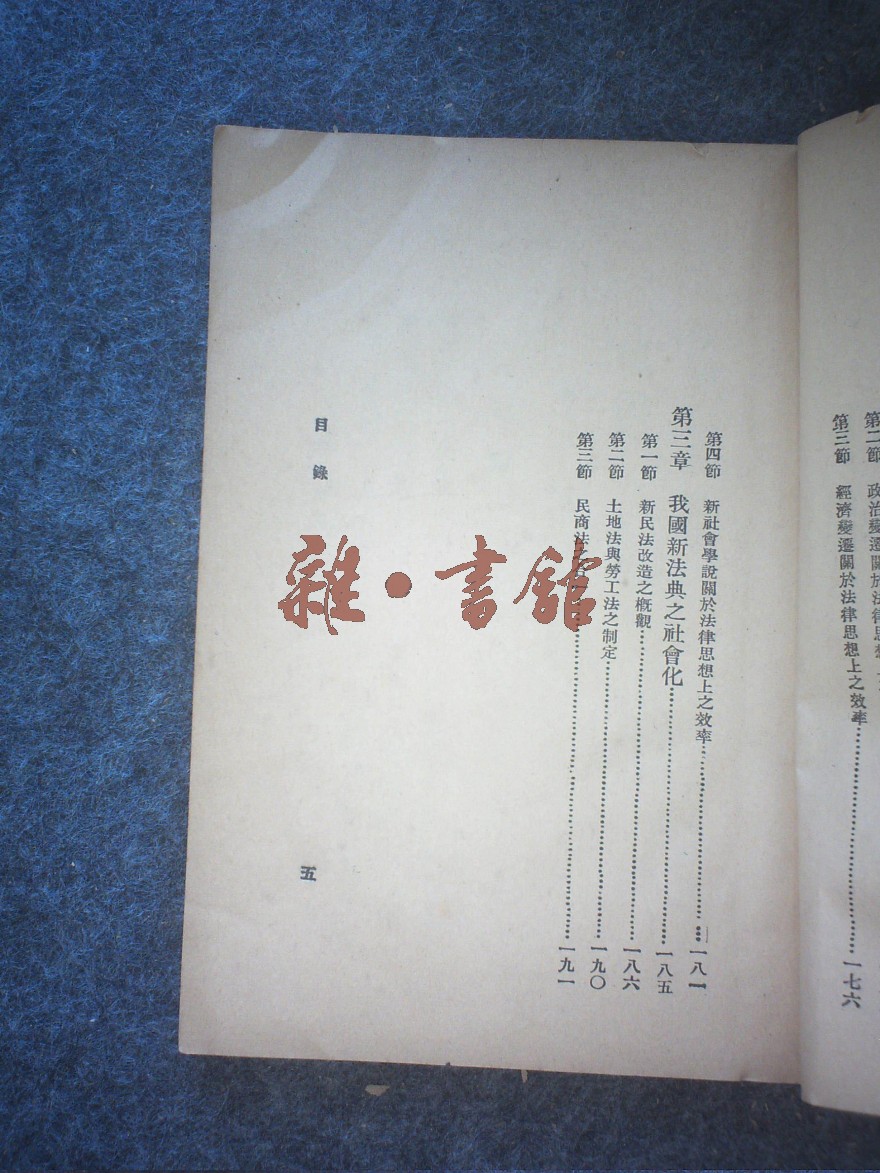 第二節 政治變遷關於法律思想上
第三節 經濟變遷關於法律思想上之效率……一七六
第四節 新社會學說關於法律思想上之效率……一八一
第三章 我國新法典之社會化……一八五
第一節 新民法改造之概觀……一八六
第二節 土地法與勞工法之制定……一九〇
第三節 民商法……一九一
目錄
五
雜·書館